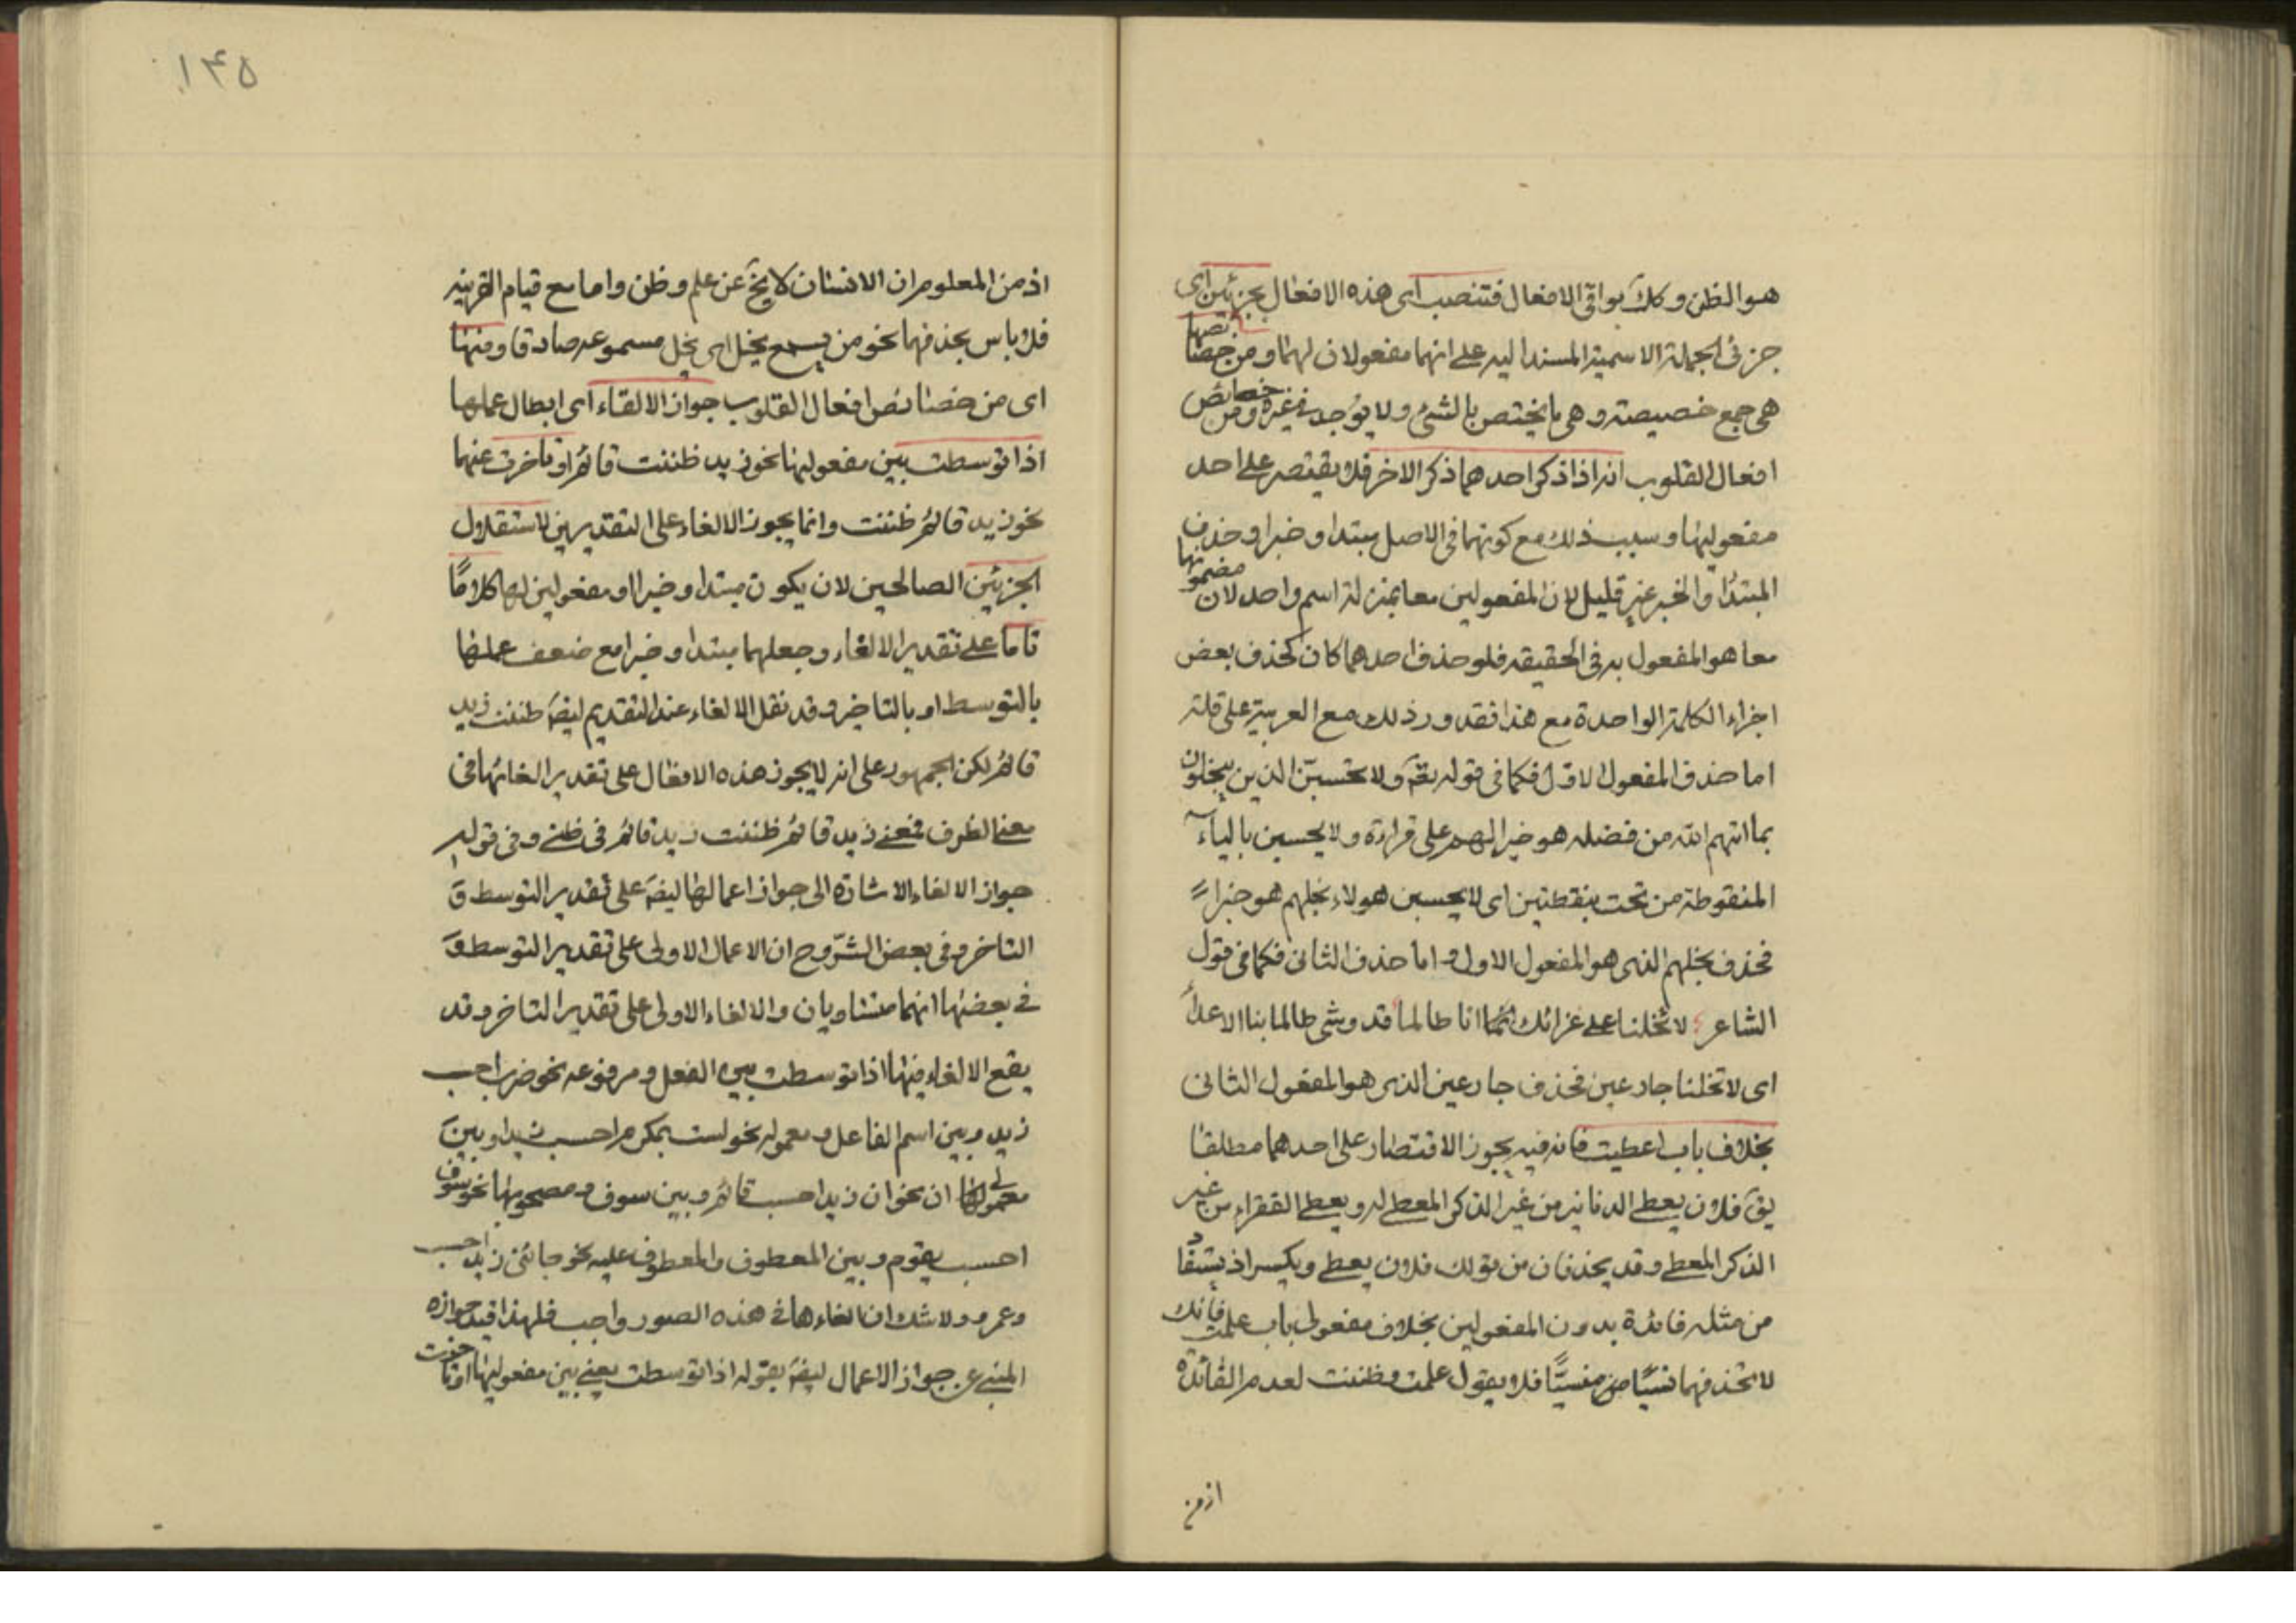 هو الظن وكك بواقى الافعال فتنصب اى هذه الافعال بجزئين اى
جزئى الجملة الاسمية المسند اليه على انهما مفعولان لهما ومن خصائصها
هى جمع خصيصة وهى ما يختص بالشئ ولا يوجد فى غيره ومن خصائص
افعال القلوب انه اذا ذكر احدهما ذكر الاخر فلا يقتصر على احد
مفعوليها وسبب ذلك مع كونهما فى الاصل مبتدا وخبرا وحذف
المبتدا والخبر غير قليل لان المفعولين معا بمنزلة اسم واحد لان مضمونها
معا هو المفعول به فى الحقيقه فلو حذف احدهما كان كحذف بعض
اجزاء الكلمة الواحدة مع هذا فقد ورد ذلك مع العربية على قلة
اما حذف المفعول الاول فكما فى قوله تقم ولا تحسبن الذين يبخلون
بما اتيهم الله من فضله هو خير الهم على قراءة ولا يحسبن بالياء
المنقوطة من تحت بنقطتين اى لا يحسبن هولاء بخلهم هو خيرا
فحذف بخلهم الذى هو المفعول الاول واما حذف الثانى فكما فى قول
الشاعر لا تخلنا على غرائك انما انا طالما قد وشى طالما بنا الاعداء
اى لا تخلنا جارعين فحذف جارعين الذى هو المفعول الثانى
بخلاف باب اعطيت فانه فيه يجوز الاقتصار على احدهما مطلقا
يق فلان يعطى الدنانير من غير الذكر المعطى له ويعطى الفقراء من غير
الذكر المعطى وقد يحذفان من قولك فلان يعطى ويكسر اذ يستفاد
من مثله فائدة بدون المفعولين بخلاف مفعولى باب علمت فانك
لا تحذفهما نسيا من منسيا فلا يقول علمت وظننت لعدم الفائدة
اذ من
١۴۵
اذ من المعلوم ان الانسان لا يخ عن علم وظن واما مع قيام القرينه
فلا باس بحذفهما نحو من يسمع يخل اى يخل مسموعه صادقا ومنها
اى من خصائص افعال القلوب جواز الالقاء اى ابطال عملها
اذا توسطت بين مفعوليها نحو زيد ظننت قائم او تاخرت عنهما
نحو زيد قائم ظننت وانما يجوز الالغاء على التقديرين لاستقلال
الجزئين الصالحين لان يكون مبتدا وخبرا او مفعولين لها كلاما
تاما على تقدير الالغاء وجعلهما مبتدا وخبرا مع ضعف عملها
بالتوسط او بالتاخير وقد نقل الالغاء عند التقديم ايضا ظننت زيد
قائم لكن الجمهور على انه لا يجوز هذه الافعال على تقدير الغائها فى
معنى الظرف فمعنى زيد قائم ظننت زيد قائم فى ظنى وفى قوله
جواز الالغاء الاشارة الى جواز اعمالها ايضا على تقدير التوسط و
التاخر وفى بعض الشروح ان الاعمال الاولى على تقدير التوسط و
فى بعضها انهما متساويان والالغاء الاولى على تقدير التاخر وقد
يقع الالغاء فيها اذا توسطت بين الفعل ومرفوعه نحو ضرب احسب
زيد وبين اسم الفاعل ومعموله نحو لست بمكرم احسب زيدا وبين
معمولى ان نحو ان زيدا احسب قائم وبين سوف ومصحوبها نحو سوف
احسب يقوم وبين المعطوف والمعطوف عليه نحو جائنى زيد احسب
وعمرو ولا شك ان الغاءها فى هذه الصور واجب فلهذا قيد جوازه
المنبى عن جواز الاعمال ايضا بقوله اذا توسطت يعنى بين مفعوليها او تاخرت